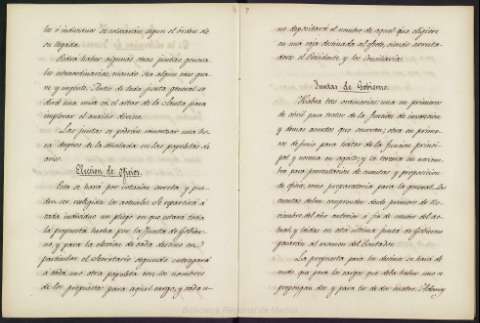 los ó individuos se colocarán segun el órden de
su llegada.
Podrá haber algunas otras juntas genera-
les extraordinarias, siendo por algun caso gra-
ve y urgente. Antes de toda junta general se
dirá una misa en el altar de la Santa para
implorar el auxilio divino.
Las juntas se podrán comenzar una ho-
ra despues de la señalada en las papeletas de
aviso.
Eleccion de oficios.
Esta se hará por votacion secreta y pue-
den ser reelegidos los actuales. Se repartirá á
cada individuo un pliego en que estará toda
la propuesta hecha por la Junta de Gobier-
no y para la eleccion de cada destino en
particular el Secretario segundo entregará
á cada uno otra papeleta con los nombres
de los propuestos para aquel cargo, y cada u-
7
no depositará el nombre de aquel que eligiere
en una caja destinada al efecto, siendo escruta-
dores el Presidente y los Conciliarios.
Juntas de Gobierno.
Habrá tres ordinarias: una en primero
de abril para tratar de la funcion de invencion
y demas asuntos que ocurran; otra en prime-
ro de junio para tratar de la funcion princi-
pal y novena en agosto; y la tercera en noviem-
bre para presentacion de cuentas y proposicion
de oficios, como preparatoria para la general. Las
cuentas deben comprender desde primero de Di-
ciembre del año anterior á fin de octubre del ac-
tual, y leidas en esta última junta de Gobierno
pasarán al examen del Contador.
La propuesta para los destinos se hará de
modo que para los cargos que deba haber uno se
propongan dos y para los de dos
Biblioteca Regional de Murcia